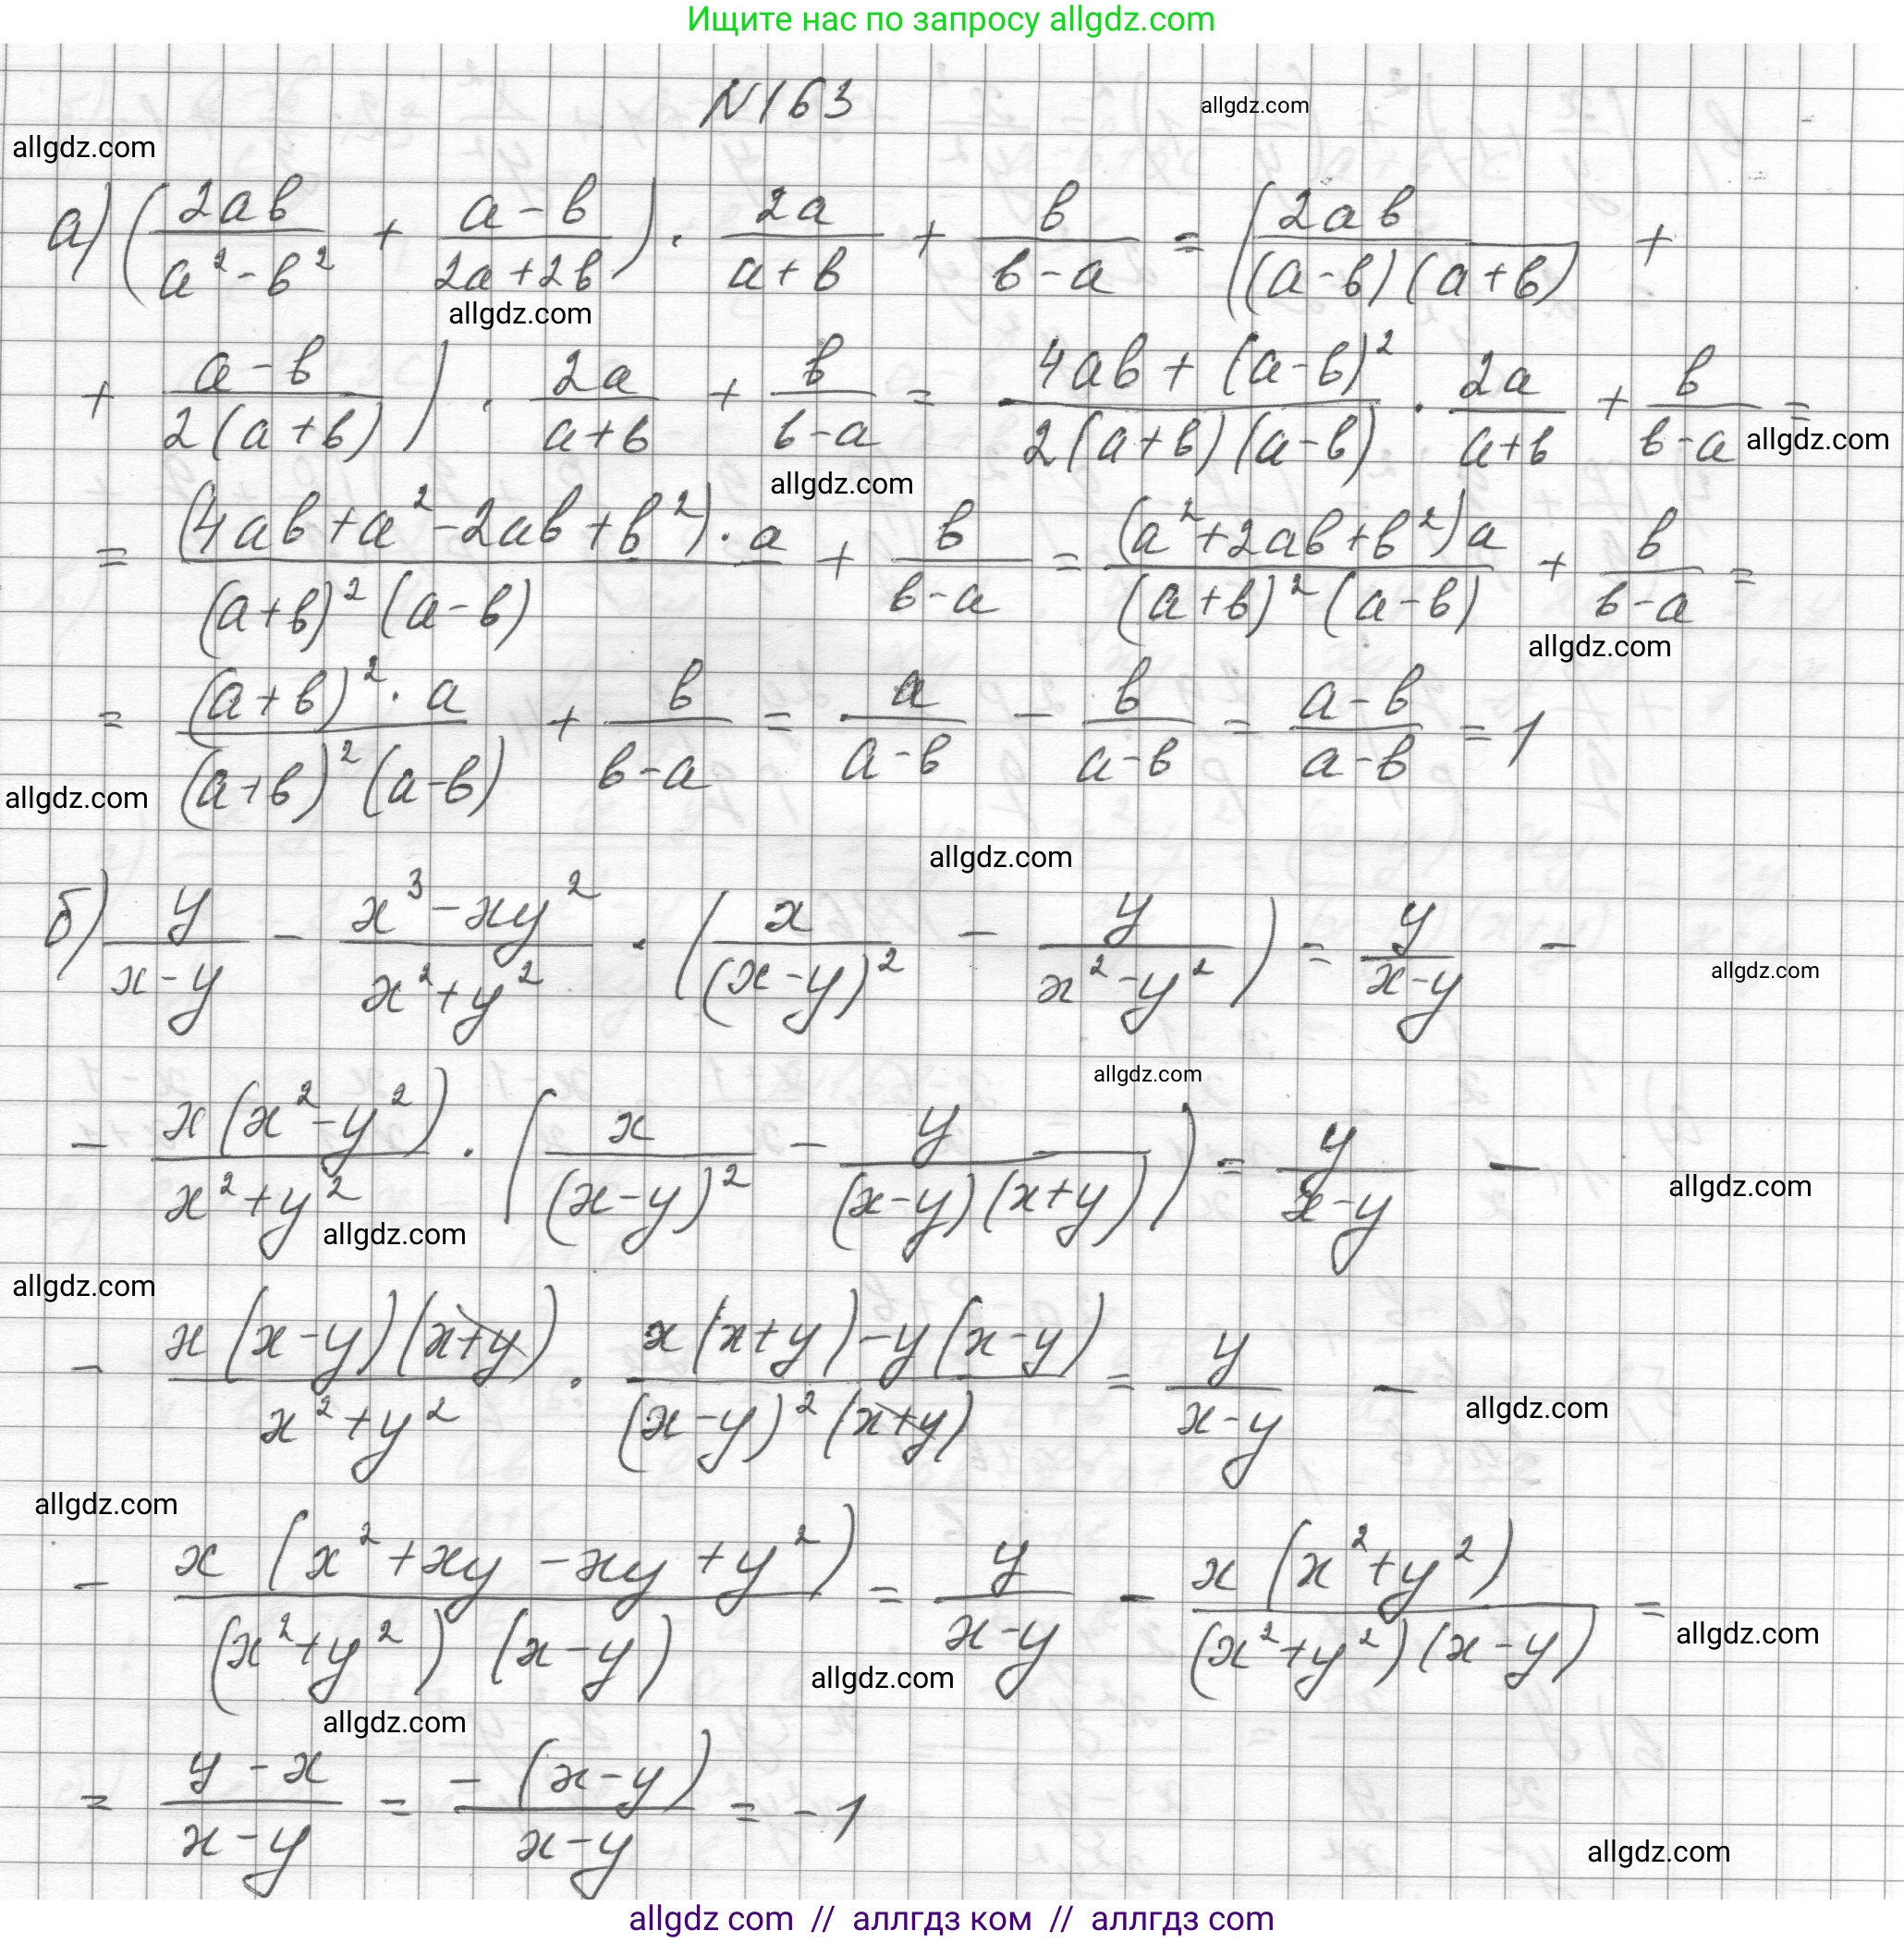 Ищите нас по запросу allgdz.com
N163
allgdz.com
allgdz.com
а) (2ab/(a²-b²) + (a-b)/(2a+2b)) · 2a/(a+b) + b/(b-a) = (2ab/((a-b)(a+b)) +
allgdz.com
+ (a-b)/(2(a+b))) · 2a/(a+b) + b/(b-a) = (4ab+(a-b)²)/(2(a+b)(a-b)) · 2a/(a+b) + b/(b-a) =
allgdz.com
allgdz.com
= ((4ab+a²-2ab+b²)·a)/((a+b)²(a-b)) + b/(b-a) = ((a²+2ab+b²)a)/((a+b)²(a-b)) + b/(b-a) =
allgdz.com
= ((a+b)²·a)/((a+b)²(a-b)) + b/(b-a) = a/(a-b) - b/(a-b) = (a-b)/(a-b) = 1
allgdz.com
allgdz.com
б) y/(x-y) - (x³-xy²)/(x²+y²) · (x/(x-y)² - y/(x²-y²)) = y/(x-y) -
allgdz.com
allgdz.com
- (x(x²-y²))/(x²+y²) · (x/(x-y)² - y/((x-y)(x+y))) = y/(x-y) -
allgdz.com
allgdz.com
allgdz.com
- (x(x-y)(x+y))/(x²+y²) · (x(x+y)-y(x-y))/((x-y)²(x+y)) = y/(x-y) -
allgdz.com
allgdz.com
- (x(x²+xy-xy+y²))/((x²+y²)(x-y)) = y/(x-y) - (x(x²+y²))/((x²+y²)(x-y)) =
allgdz.com
allgdz.com
allgdz.com
= (y-x)/(x-y) = (-(x-y))/(x-y) = -1
allgdz.com
allgdz com // аллгдз ком // аллгдз com